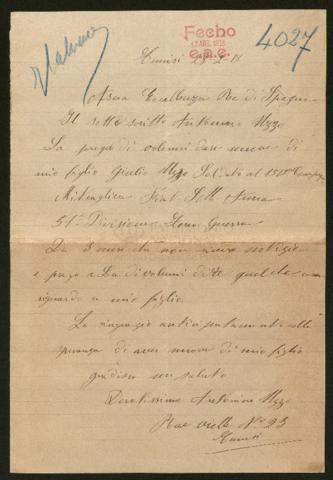 Italiano
Fecho
17 ABR. 1918
e.a.e.
4027
Tunisi
Asua Eccellenza Re di Spagna
Il sotto scritto Antonino Uzzo
La prega di volermi dare nuove di
mio figlio Giulio Uzzo Soldato al
Mitraglieri Fiat
51ª Divisione Zona Guerra
Da 5 mesi che non ricevo notizie
e prego a La di volermi dire quel che
riguardo a mio figlio
La ringrazio anticipatamente nella
speranza di aver nuove di mio figlio
gradisca un saluto
Devotissimo Antonino Uzzo
Rue vielle Nº 23
Tunisi